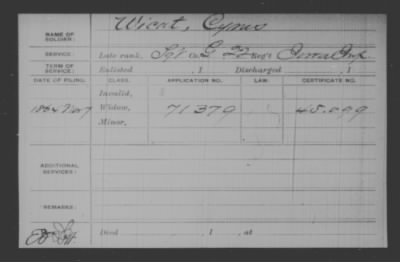 NAME OF SOLDIER: Wicat, Cyrus
SERVICE: Late rank, Sgt Co. G 22 Reg't Inf.
TERM OF SERVICE: Enlisted , 1 Discharged , 1
DATE OF FILING. CLASS. APPLICATION NO. LAW. CERTIFICATE NO.
Invalid,
1864 Nov 7 Widow, 71379 45.099
Minor,
ADDITIONAL SERVICES:
REMARKS:
Died , 1 , at